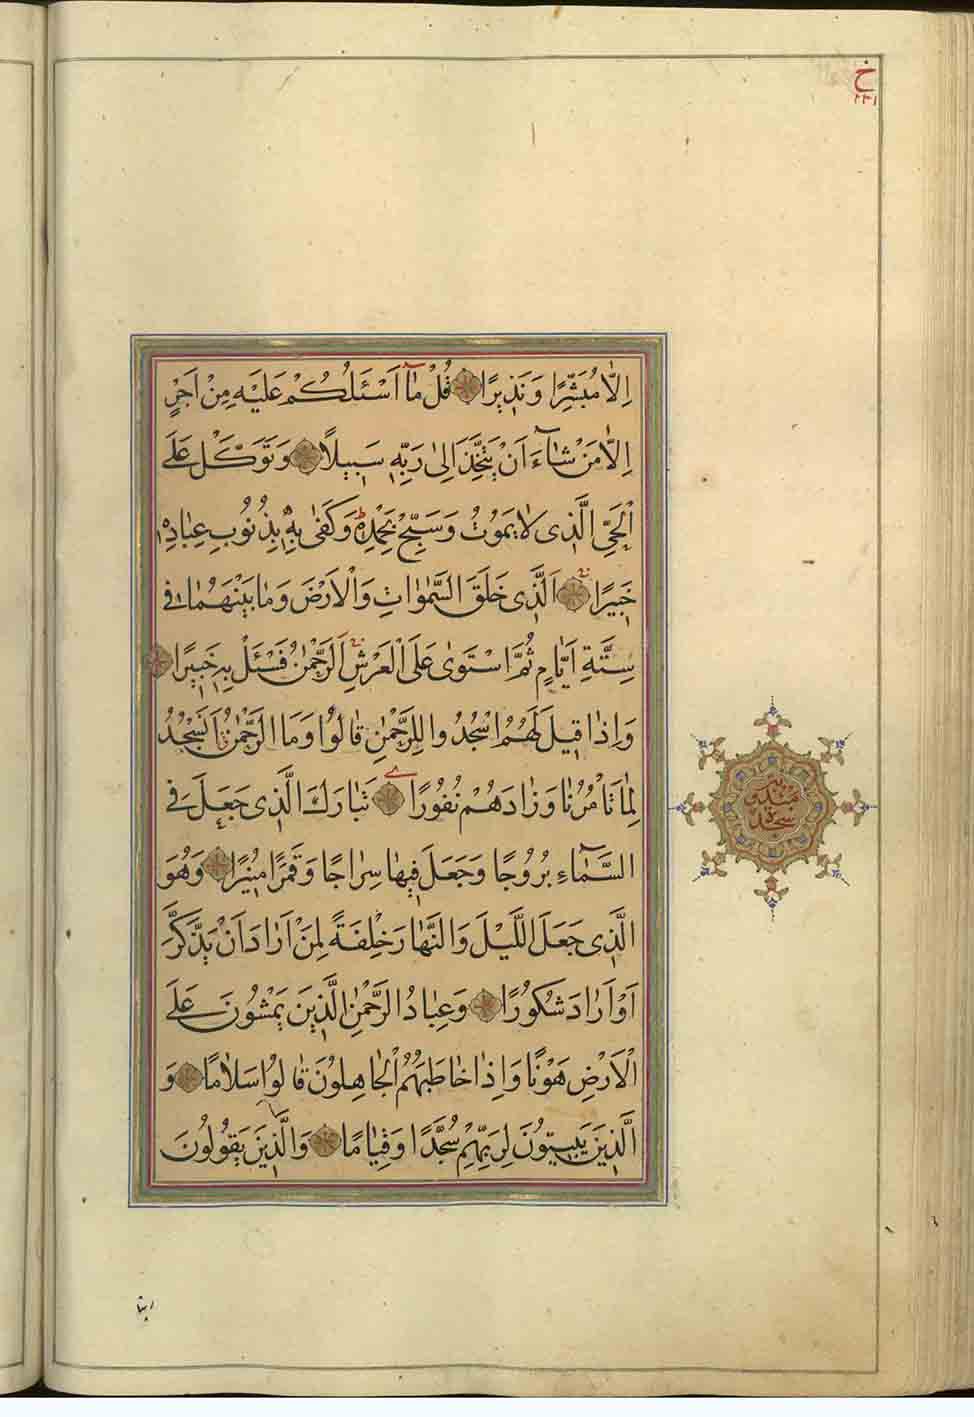 اِلَّا مُبَشِّرًا وَنَذِيرًا قُلْ مَآ اَسْـَٔلُكُمْ عَلَيْهِ مِنْ اَجْرٍ
اِلَّا مَنْ شَآءَ اَنْ يَتَّخِذَ اِلىٰ رَبِّهٖ سَبِيلًا وَتَوَكَّلْ عَلَى
الْحَيِّ الَّذِى لَا يَمُوتُ وَسَبِّحْ بِحَمْدِهٖ وَكَفٰى بِهٖ بِذُنُوبِ عِبَادِهٖ
خَبِيرًا اَلَّذِى خَلَقَ السَّمٰوَاتِ وَالْاَرْضَ وَمَا بَيْنَهُمَا فِى
سِتَّةِ اَيَّامٍ ثُمَّ اسْتَوٰى عَلَى الْعَرْشِ اَلرَّحْمٰنُ فَسْـَٔلْ بِهٖ خَبِيرًا
وَاِذَا قِيلَ لَهُمُ اسْجُدُوا لِلرَّحْمٰنِ قَالُوا وَمَا الرَّحْمٰنُ اَنَسْجُدُ
لِمَا تَأْمُرُنَا وَزَادَهُمْ نُفُورًا تَبَارَكَ الَّذِى جَعَلَ فِى
السَّمَآءِ بُرُوجًا وَجَعَلَ فِيهَا سِرَاجًا وَقَمَرًا مُنِيرًا وَهُوَ
الَّذِى جَعَلَ اللَّيْلَ وَالنَّهَارَ خِلْفَةً لِمَنْ اَرَادَ اَنْ يَذَّكَّرَ
اَوْ اَرَادَ شُكُورًا وَعِبَادُ الرَّحْمٰنِ الَّذِينَ يَمْشُونَ عَلَى
الْاَرْضِ هَوْنًا وَاِذَا خَاطَبَهُمُ الْجَاهِلُونَ قَالُوا سَلَامًا وَ
الَّذِينَ يَبِيتُونَ لِرَبِّهِمْ سُجَّدًا وَقِيَامًا وَالَّذِينَ يَقُولُونَ
سجدة